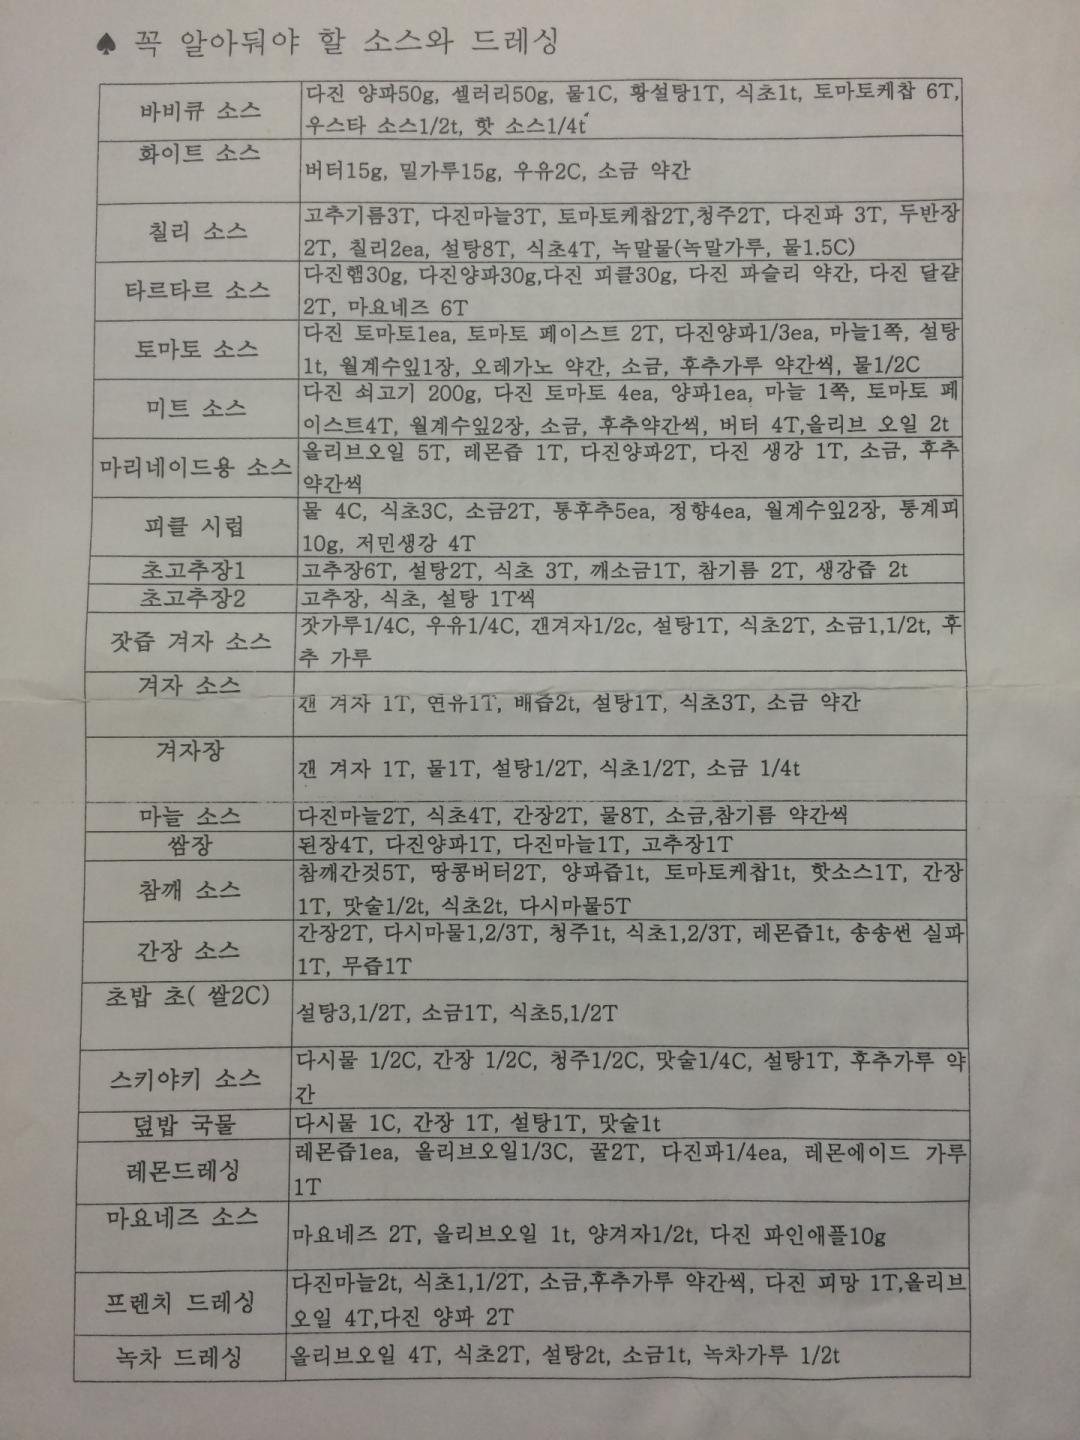 ♠ 꼭 알아둬야 할 소스와 드레싱
바비큐 소스
다진 양파50g, 셀러리50g, 물1C, 황설탕1T, 식초1t, 토마토케찹 6T,
우스타 소스1/2t, 핫 소스1/4t
화이트 소스
버터15g, 밀가루15g, 우유2C, 소금 약간
칠리 소스
고추기름3T, 다진마늘3T, 토마토케찹2T,청주2T, 다진파 3T, 두반장
2T, 칠리2ea, 설탕8T, 식초4T, 녹말물(녹말가루, 물1.5C)
타르타르 소스
다진햄30g, 다진양파30g,다진 피클30g, 다진 파슬리 약간, 다진 달걀
2T, 마요네즈 6T
토마토 소스
다진 토마토1ea, 토마토 페이스트 2T, 다진양파1/3ea, 마늘1쪽, 설탕
1t, 월계수잎1장, 오레가노 약간, 소금, 후추가루 약간씩, 물1/2C
미트 소스
다진 쇠고기 200g, 다진 토마토 4ea, 양파1ea, 마늘 1쪽, 토마토 페
이스트4T, 월계수잎2장, 소금, 후추약간씩, 버터 4T,올리브 오일 2t
마리네이드용 소스
올리브오일 5T, 레몬즙 1T, 다진양파2T, 다진 생강 1T, 소금, 후추
약간씩
피클 시럽
물 4C, 식초3C, 소금2T, 통후추5ea, 정향4ea, 월계수잎2장, 통계피
10g, 저민생강 4T
초고추장1
고추장6T, 설탕2T, 식초 3T, 깨소금1T, 참기름 2T, 생강즙 2t
초고추장2
고추장, 식초, 설탕 1T씩
잣즙 겨자 소스
잣가루1/4C, 우유1/4C, 갠겨자1/2c, 설탕1T, 식초2T, 소금1,1/2t, 후
추 가루
겨자 소스
갠 겨자 1T, 연유1T, 배즙2t, 설탕1T, 식초3T, 소금 약간
겨자장
갠 겨자 1T, 물1T, 설탕1/2T, 식초1/2T, 소금 1/4t
마늘 소스
다진마늘2T, 식초4T, 간장2T, 물8T, 소금,참기름 약간씩
쌈장
된장4T, 다진양파1T, 다진마늘1T, 고추장1T
참깨 소스
참깨간것5T, 땅콩버터2T, 양파즙1t, 토마토케찹1t, 핫소스1T, 간장
1T, 맛술1/2t, 식초2t, 다시마물5T
간장 소스
간장2T, 다시마물1,2/3T, 청주1t, 식초1,2/3T, 레몬즙1t, 송송썬 실파
1T, 무즙1T
초밥 초( 쌀2C)
설탕3,1/2T, 소금1T, 식초5,1/2T
스키야키 소스
다시물 1/2C, 간장 1/2C, 청주1/2C, 맛술1/4C, 설탕1T, 후추가루 약
간
덮밥 국물
다시물 1C, 간장 1T, 설탕1T, 맛술1t
레몬드레싱
레몬즙1ea, 올리브오일1/3C, 꿀2T, 다진파1/4ea, 레몬에이드 가루
1T
마요네즈 소스
마요네즈 2T, 올리브오일 1t, 양겨자1/2t, 다진 파인애플10g
프렌치 드레싱
다진마늘2t, 식초1,1/2T, 소금,후추가루 약간씩, 다진 피망 1T,올리브
오일 4T,다진 양파 2T
녹차 드레싱
올리브오일 4T, 식초2T, 설탕2t, 소금1t, 녹차가루 1/2t